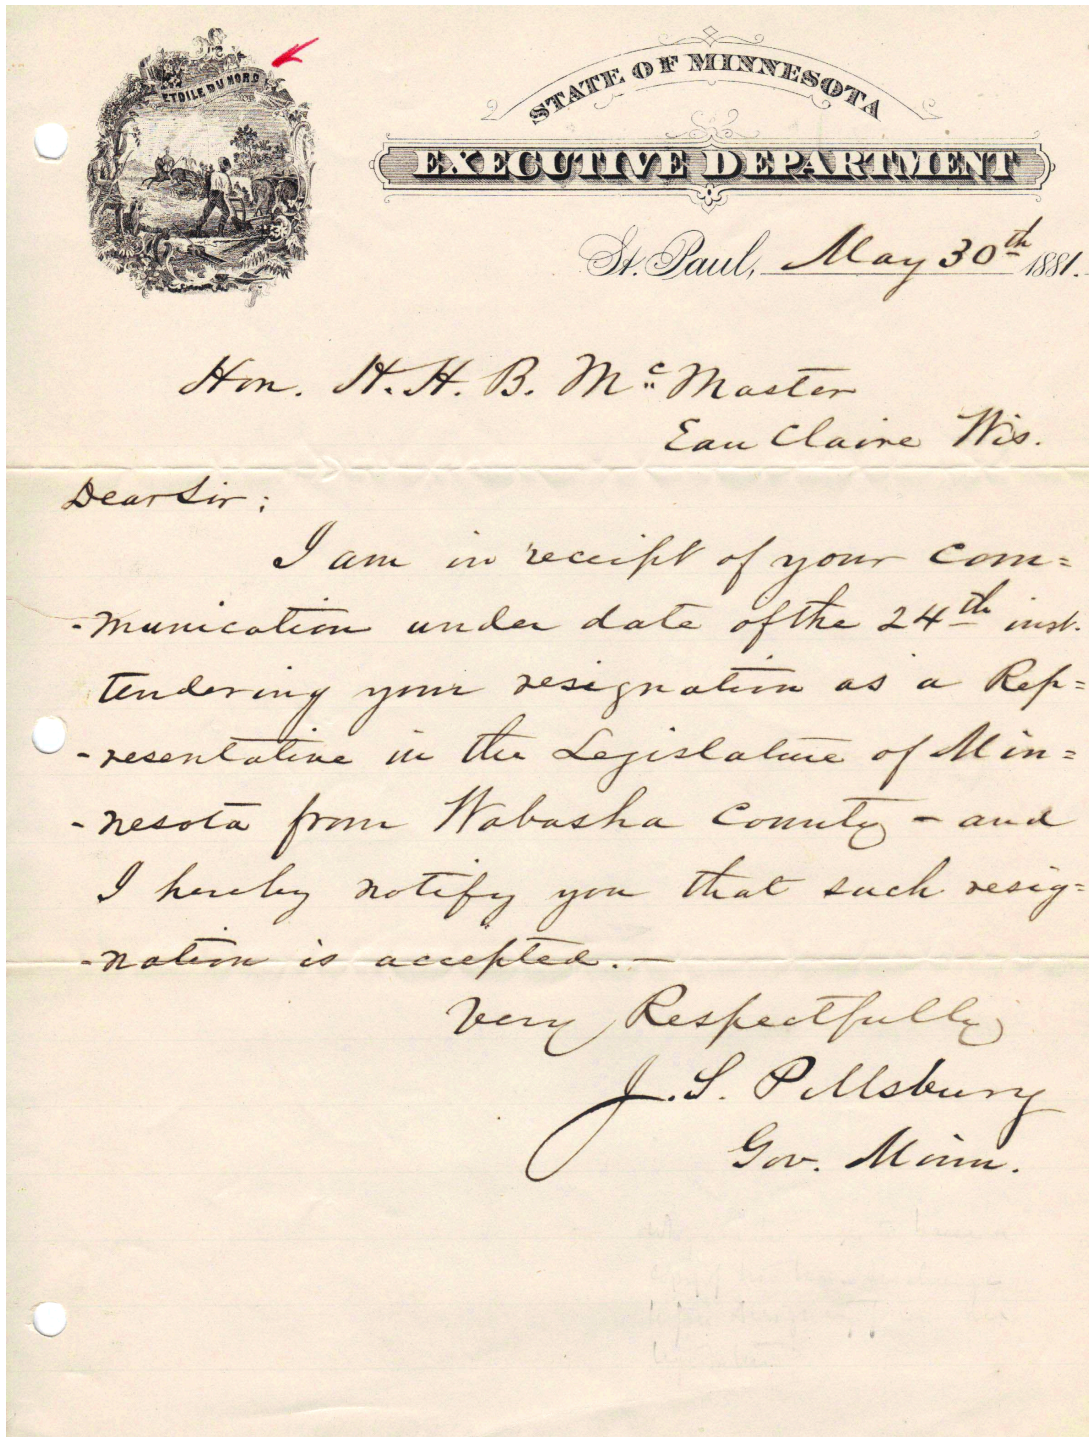 ETOILE DU NORD
STATE OF MINNESOTA
EXECUTIVE DEPARTMENT
St. Paul, May 30th 1881.
Hon. H. H. B. Mc Master
Eau Claire Wis.
Dear Sir;
I am in receipt of your com=
-munication under date of the 24th inst.
tendering your resignation as a Rep=
-resentative in the Legislature of Min=
-nesota from Wabasha County - and
I hereby notify you that such resig=
-nation is accepted.-
Very Respectfully
J. S. Pillsbury
Gov. Minn.